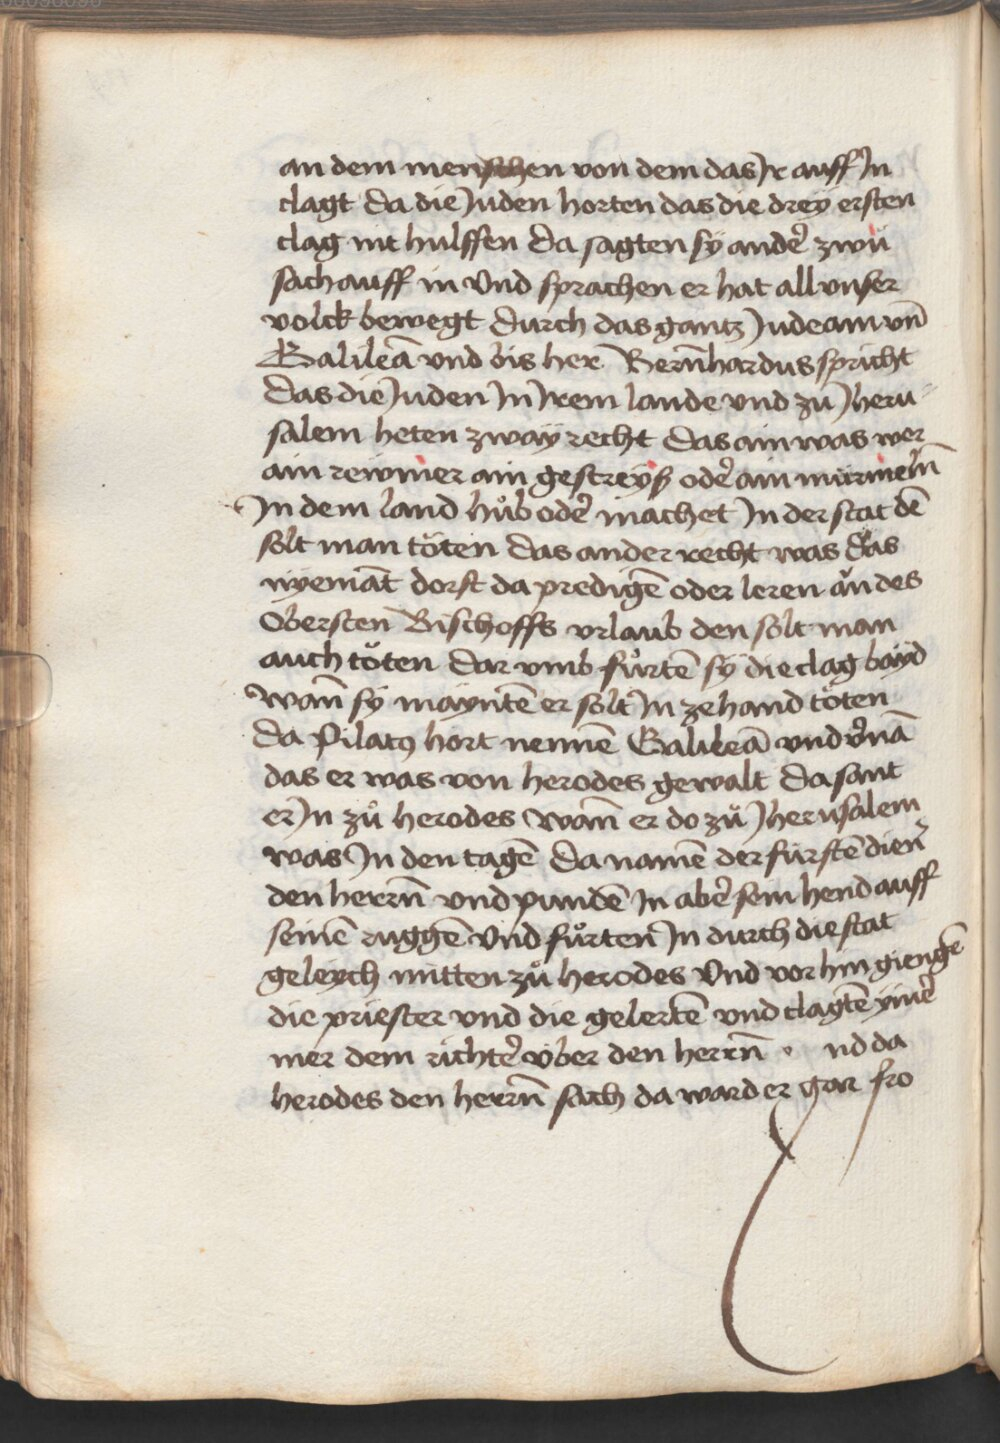 an dem menschen von dem das Ir auff In
clagt Da die Juden horten das die dreÿ ersten
clag nit hulffen Da sagten sÿ andeͬ zwu
sach auff in Vnd sprachen er hat all vnser
volck bewegt Durch das gantz Judeam vn̄
Galileā vnd bis her Bern̄hardus spricht
Das die Juden In Irem lande vnd zu Jheru
salem heten zwaÿ recht Das ain was wer
ain rewmer ain gestreÿß odeͬ ain murmeln̄
In dem land hůb odeͬ machet In der stat dē
solt man töten Das ander recht was das
nÿemāt dorst da predigē oder leren an des
Obersten Bischoffs vrlaub den solt man
auch töten Dar vmb fůrtē sÿ die clag baÿd
Wan̄ sÿ maÿntē er solt In zehand töten
Da Pilatꝰ hort nennē Galileā vnd vͬnā
das er was von herodes gewalt Da sant
er In zů herodes Wan̄ er do zů Jherusalem
was In den tagē Da namē der fürstē dieneͬ
den herrn̄ vnd pundē In abeͬ sein hend auff
seinē ruggē Vnd fůrten In durch die stat
geleÿch mitten zů herodes Vnd vor hin giengē
die priester vnd die gelertē vnd clagtē ÿmeͬ
mer dem richteͬ vber den herrn̄ nd da
herodes den herrn̄ sach da ward er gar fro